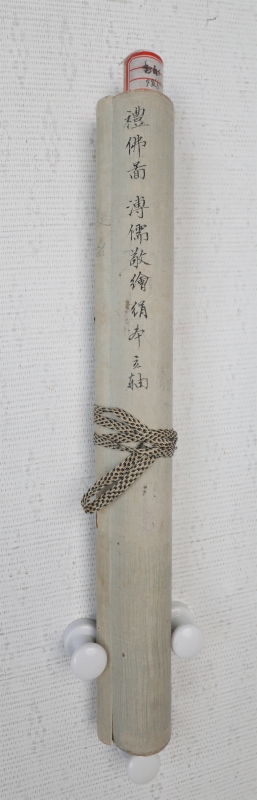 禮佛畣 溥儒敬繪絹本立軸